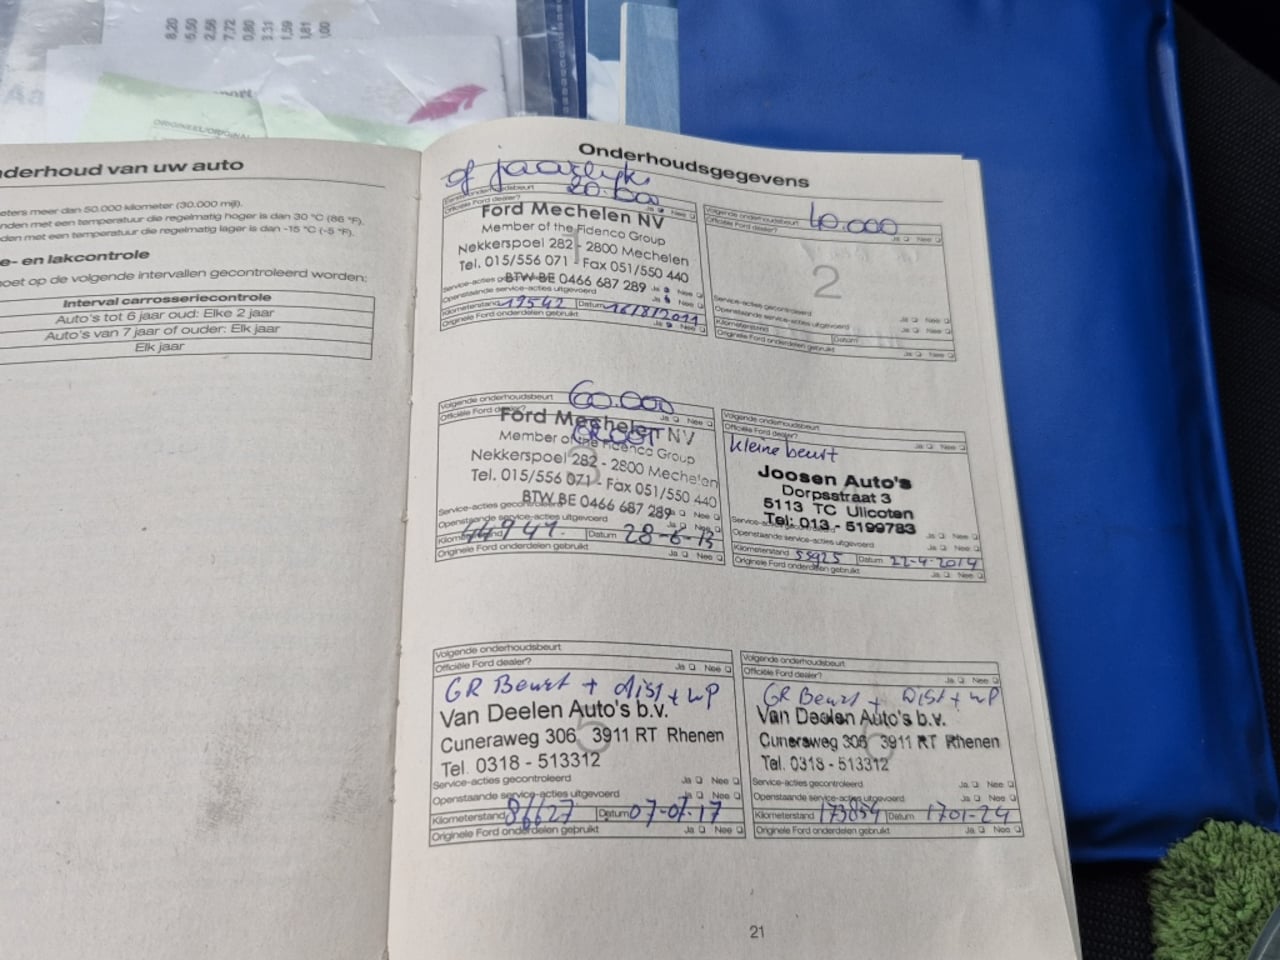 8,20
5,50
2,56
7,72
0,80
3,31
1,59
1,81
,00
port
ORIGINEEL/ORIGINAL
nderhoud van uw auto
eters meer dan 50.000 kilometer (30.000 mijl).
nden met een temperatuur die regelmatig hoger is dan 30 °C (86 °F).
den met een temperatuur die regelmatig lager is dan -15 °C (-5 °F).
e- en lakcontrole
moet op de volgende intervallen gecontroleerd worden:
Interval carrosseriecontrole
Auto's tot 6 jaar oud: Elke 2 jaar
Auto's van 7 jaar of ouder: Elk jaar
Elk jaar
Onderhoudsgegevens
of jaarlijks
20.000
Eerste onderhoudsbeurt
Officiële Ford dealer? Ja Nee
Ford Mechelen NV
Member of the Fidenco Group
Nekkerspoel 282 - 2800 Mechelen
Tel. 015/556 071 - Fax 051/550 440
BTW BE 0466 687 289
Service-acties gecontroleerd Ja Nee
Openstaande service-acties uitgevoerd Ja Nee
Kilometerstand 17542 Datum 16/8/2011
Originele Ford onderdelen gebruikt Ja Nee
Volgende onderhoudsbeurt 40.000
Officiële Ford dealer? Ja Nee
2
Service-acties gecontroleerd Ja Nee
Openstaande service-acties uitgevoerd Ja Nee
Kilometerstand Datum
Originele Ford onderdelen gebruikt Ja Nee
Volgende onderhoudsbeurt 60.000
Officiële Ford dealer? Ja Nee
GROOT
Ford Mechelen NV
Member of the Fidenco Group
Nekkerspoel 282 - 2800 Mechelen
Tel. 015/556 071 - Fax 051/550 440
BTW BE 0466 687 289
3
Service-acties gecontroleerd Ja Nee
Openstaande service-acties uitgevoerd Ja Nee
Kilometerstand 44941 Datum 28-6-13
Originele Ford onderdelen gebruikt Ja Nee
Volgende onderhoudsbeurt
Officiële Ford dealer? Ja Nee
kleine beurt
Joosen Auto's
Dorpsstraat 3
5113 TC Ulicoten
Tel: 013 - 5199783
Service-acties gecontroleerd
Openstaande service-acties uitgevoerd Ja Nee
Kilometerstand 55925 Datum 22-4-2014
Originele Ford onderdelen gebruikt Ja Nee
Volgende onderhoudsbeurt
Officiële Ford dealer? Ja Nee
GR Beurt + dist + wp
Van Deelen Auto's b.v.
Cuneraweg 306 3911 RT Rhenen
Tel. 0318 - 513312
5
Service-acties gecontroleerd Ja Nee
Openstaande service-acties uitgevoerd Ja Nee
Kilometerstand 86627 Datum 07-07-17
Originele Ford onderdelen gebruikt Ja Nee
Volgende onderhoudsbeurt
Officiële Ford dealer? Ja Nee
GR Beurt + Dist + wP
Van Deelen Auto's b.v.
Cuneraweg 306 3911 RT Rhenen
Tel. 0318 - 513312
6
Service-acties gecontroleerd Ja Nee
Openstaande service-acties uitgevoerd Ja Nee
Kilometerstand 173854 Datum 1701-24
Originele Ford onderdelen gebruikt Ja Nee
21